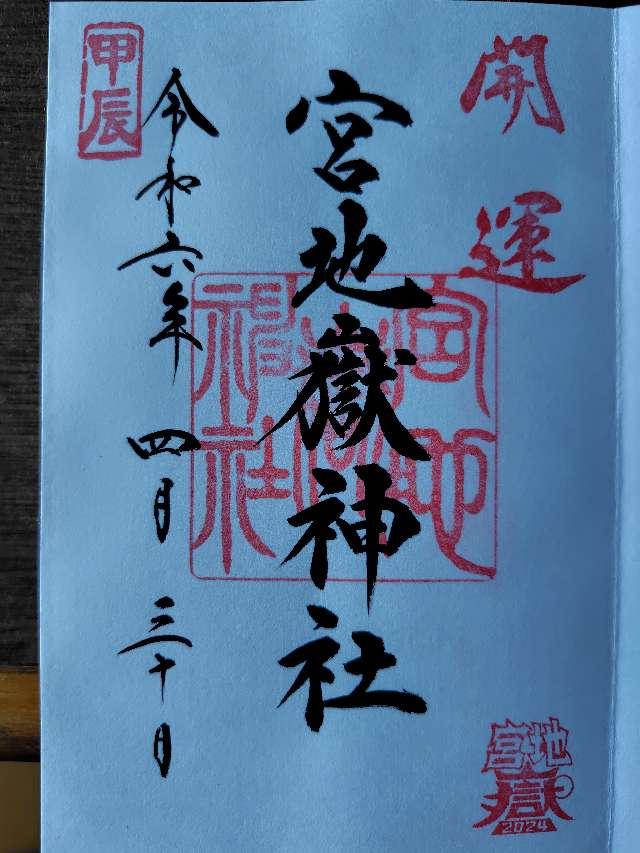 開運
宮地嶽神社
宮地嶽神社
令和六年 四月 三十日
甲辰
宮地
嶽
2024